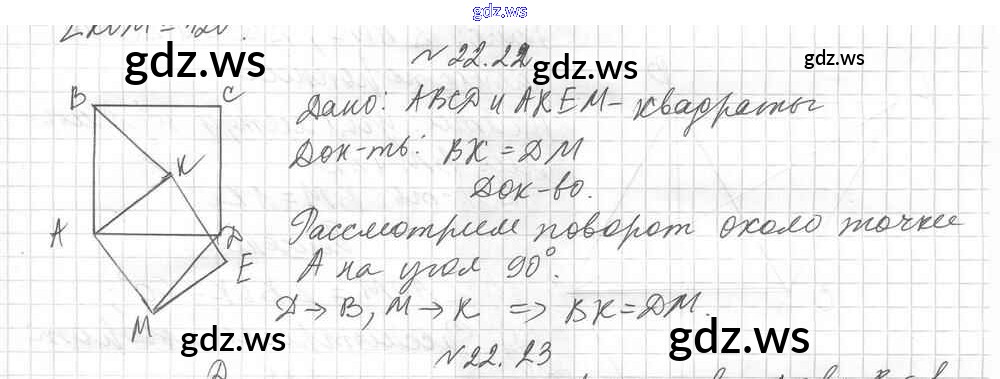 gdz.ws
N 22.22
gdz.ws
gdz.ws
gdz.ws
B C
Дано: ABCD и AKEM - квадраты
Док-ть: BK = DM
K
Док-во.
A D
Рассмотрим поворот около точки
E
A на угол 90°.
D → B, M → K ⇒ BK = DM.
M
gdz.ws
gdz.ws
N 22.23